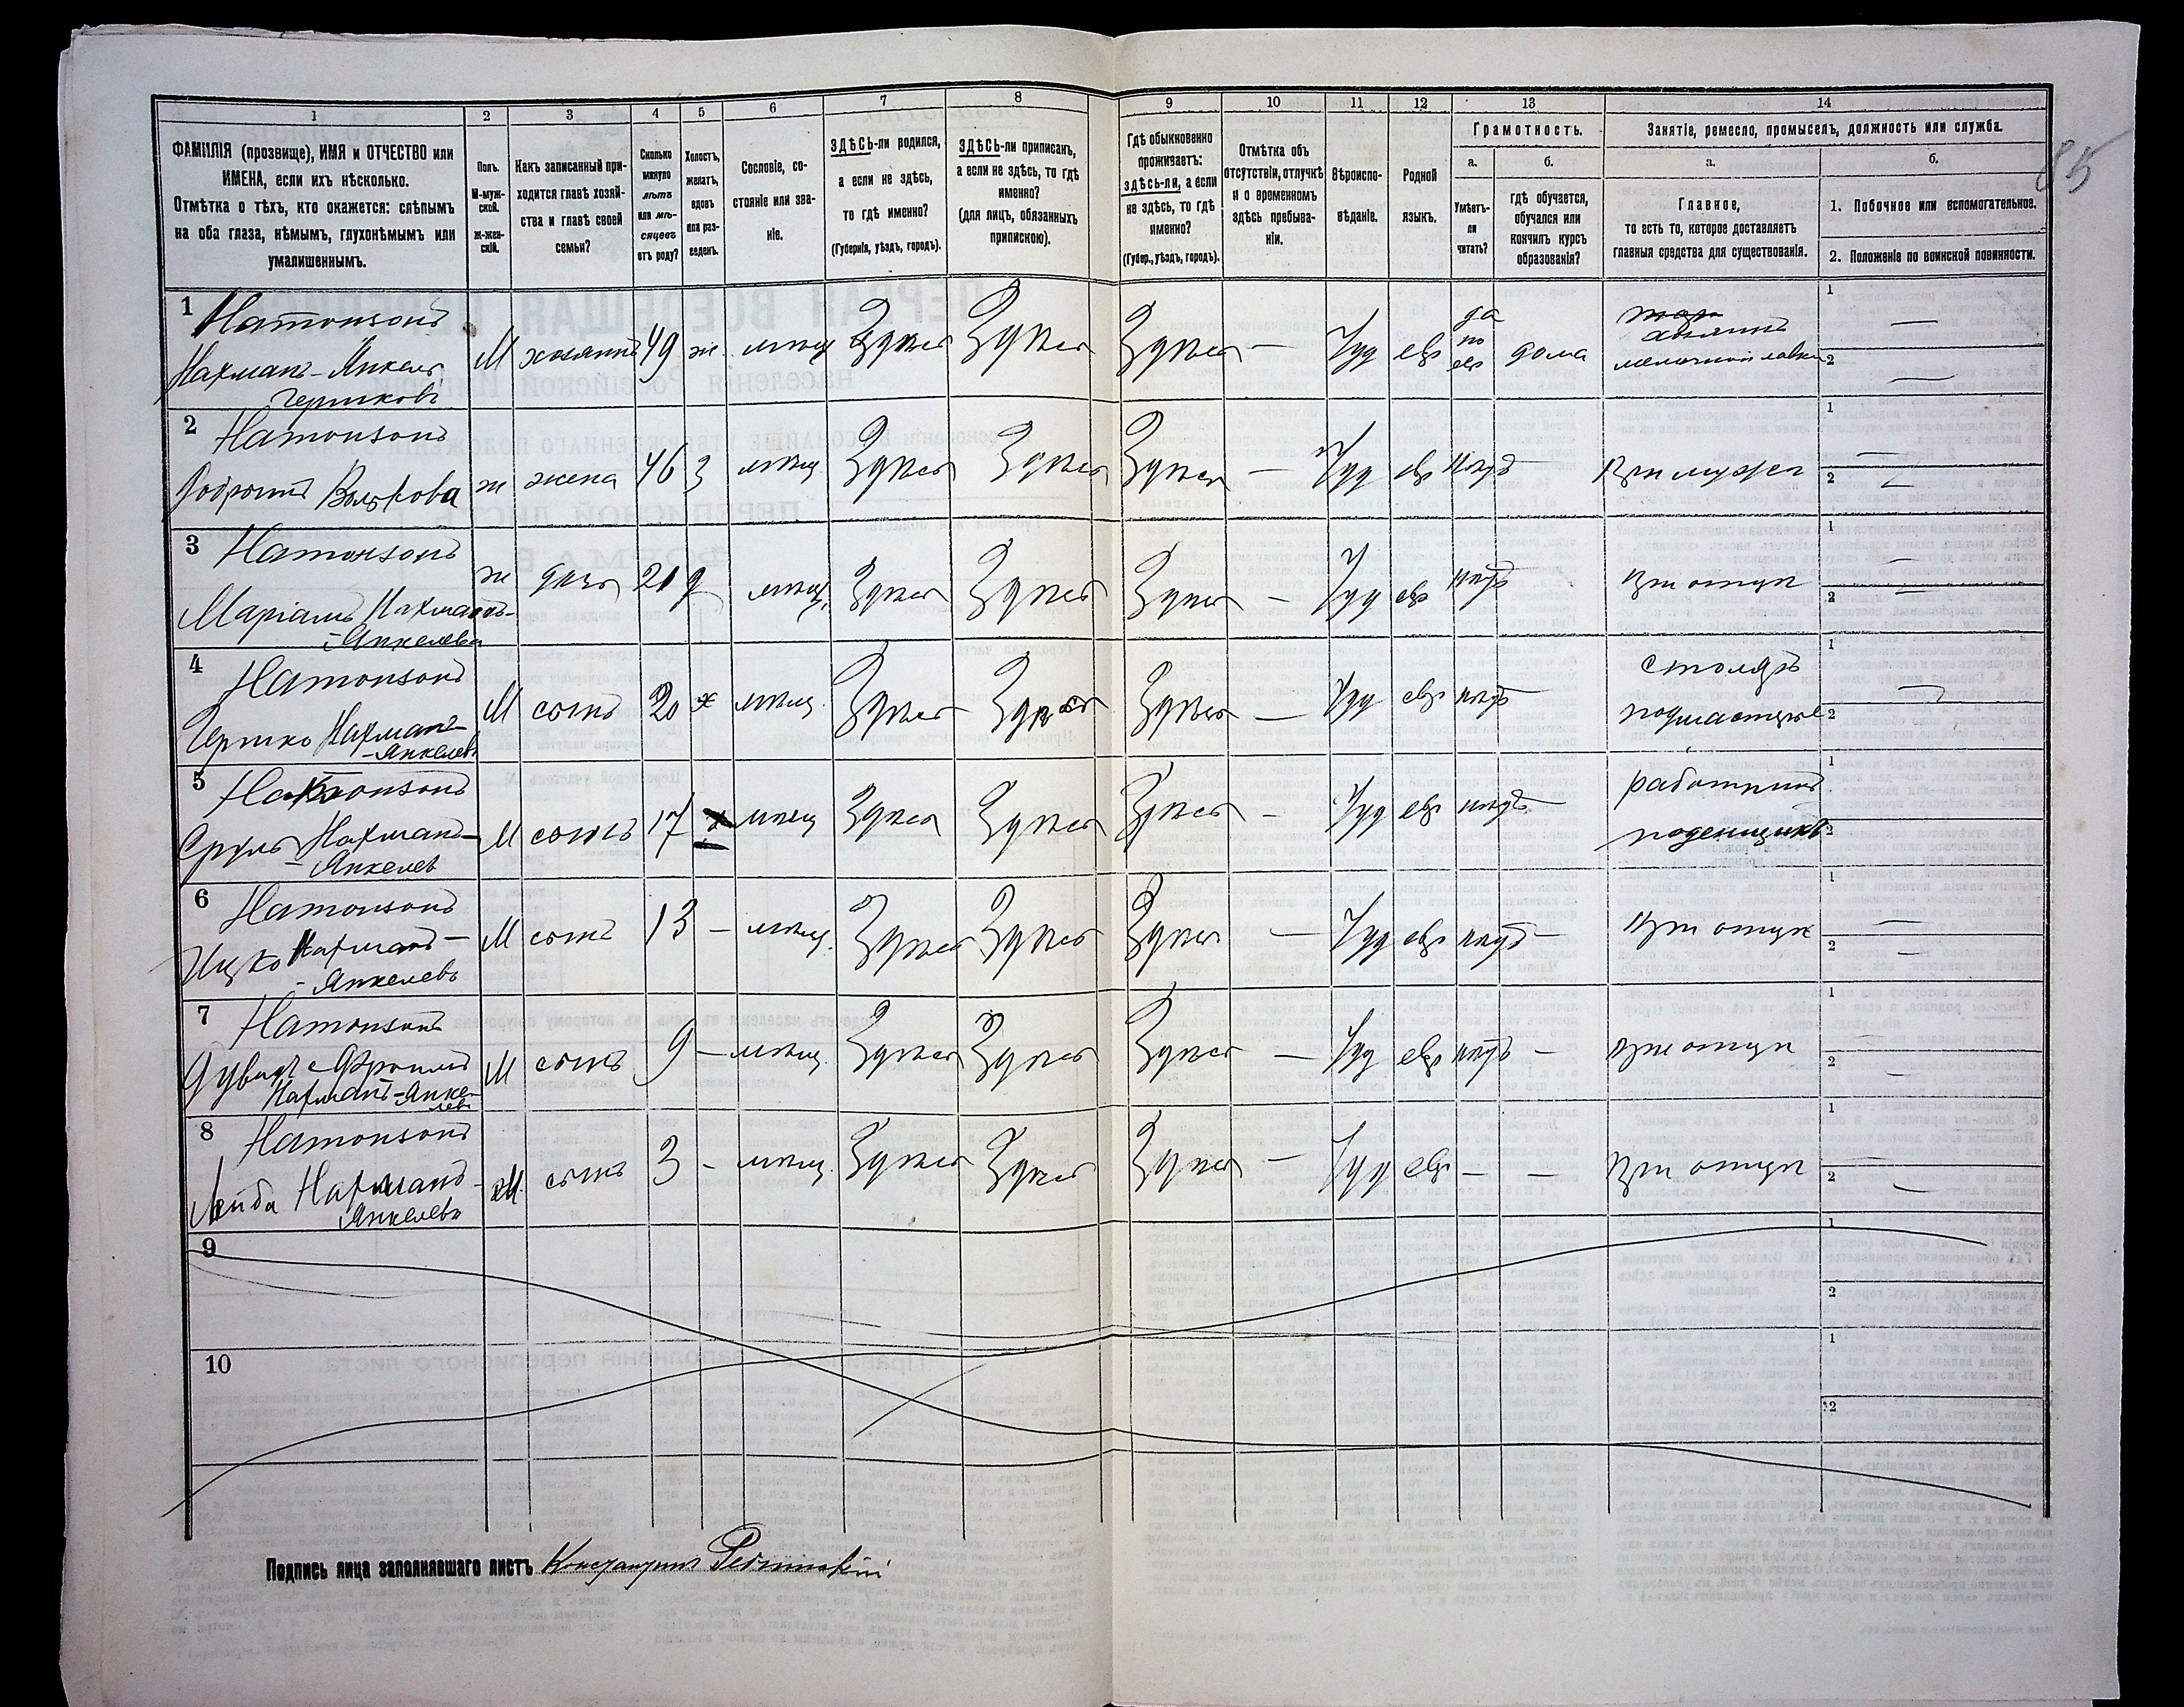 1 2 3 4 5 6 7 8 9 10 11 12 13 14
ФАМИЛІЯ (прозвище), ИМЯ и ОТЧЕСТВО или ИМЕНА, если ихъ нѣсколько.
Отмѣтка о тѣхъ, кто окажется: слѣпымъ на оба глаза, нѣмымъ, глухонѣмымъ или умалишеннымъ.
Полъ.
М-мужской.
ж-женскій.
Какъ записанный приходится главѣ хозяйства и главѣ своей семьи?
Сколько минуло лѣтъ или мѣсяцевъ отъ роду?
Холостъ, женатъ, вдовъ или разведенъ.
Сословіе, состояніе или званіе.
ЗДѢСЬ-ли родился, а если не здѣсь, то гдѣ именно?
(Губернія, уѣздъ, городъ).
ЗДѢСЬ-ли приписанъ, а если не здѣсь, то гдѣ именно?
(для лицъ, обязанныхъ припискою).
Гдѣ обыкновенно проживаетъ: здѣсь-ли, а если не здѣсь, то гдѣ именно?
(Губер., уѣздъ, городъ).
Отмѣтка объ отсутствіи, отлучкѣ и о временномъ здѣсь пребываніи.
Вѣроисповѣданіе.
Родной языкъ.
Грамотность.
а.
Умѣетъ-ли читать?
б.
гдѣ обучается, обучался или кончилъ курсъ образованія?
Занятіе, ремесло, промыселъ, должность или служба.
а.
Главное,
то есть то, которое доставляетъ главныя средства для существованія.
б.
1. Побочное или вспомогательное.
2. Положеніе по воинской повинности.
85
1 Натонзонъ
Нахманъ-Янкель
Гершковъ
М хозяинъ 49 ж. мѣщ Здѣсь Здѣсь Здѣсь — Іуд евр да по евр дома
хозяинъ
мелочной лавки
1 —
2 —
2 Натонзонъ
Волькова
ж жена 46 з мѣщ. Здѣсь Здѣсь Здѣсь — Іуд евр нѣтъ — При мужѣ
1 —
2 —
3 Натонзонъ
Маріамъ Нахманъ-
-Янкелева
ж дочь 21 д мѣщ. Здѣсь Здѣсь Здѣсь — Іуд евр нѣтъ При отцѣ
1 —
2 —
4 Натонзонъ
Гершко Нахманъ-
-Янкелевъ
М сынъ 20 х мѣщ. Здѣсь Здѣсь Здѣсь — Іуд евр нѣтъ
столяръ
подмастерье
1 —
2
5 Натонзонъ
Сруль Нахманъ-
-Янкелев
М сынъ 17 х мѣщ Здѣсь Здѣсь Здѣсь — Іуд евр нѣтъ —
работникъ
поденщикъ
1
2
6 Натонзонъ
Ицко Нахманъ-
-Янкелевъ
М сынъ 13 — мѣщ. Здѣсь Здѣсь Здѣсь — Іуд евр нѣтъ — При отцѣ
1 —
2 —
7 Натонзонъ
Дувидъ-
Нахманъ-Янкелевъ
М сынъ 9 — мѣщ. Здѣсь Здѣсь Здѣсь — Іуд евр нѣтъ — При отцѣ
1 —
2 —
8 Натонзонъ
Лейба Нахманъ-
Янкелевъ
М. сынъ 3 — мѣщ. Здѣсь Здѣсь Здѣсь — Іуд евр — — При отцѣ
1 —
2 —
9
1
2
10
1
2
Подпись лица заполнявшаго листъ Константинъ